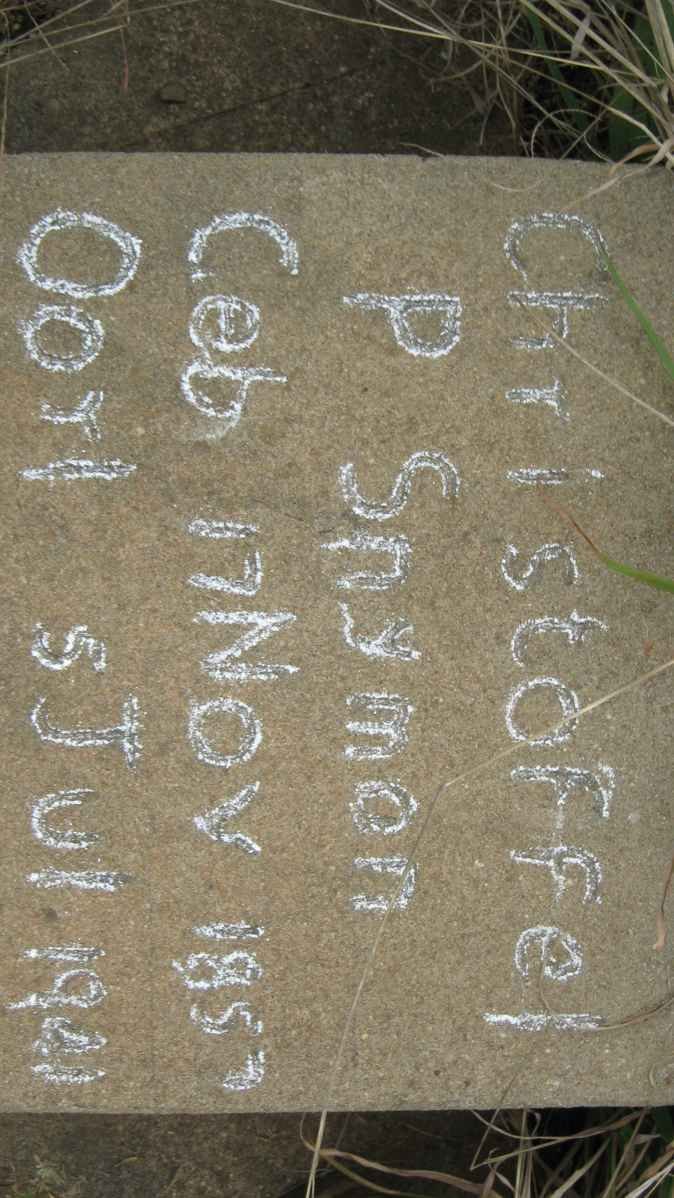 Christoffel
P Snyman
Geb 17 Nov 1857
Oorl 5 Jul 1941